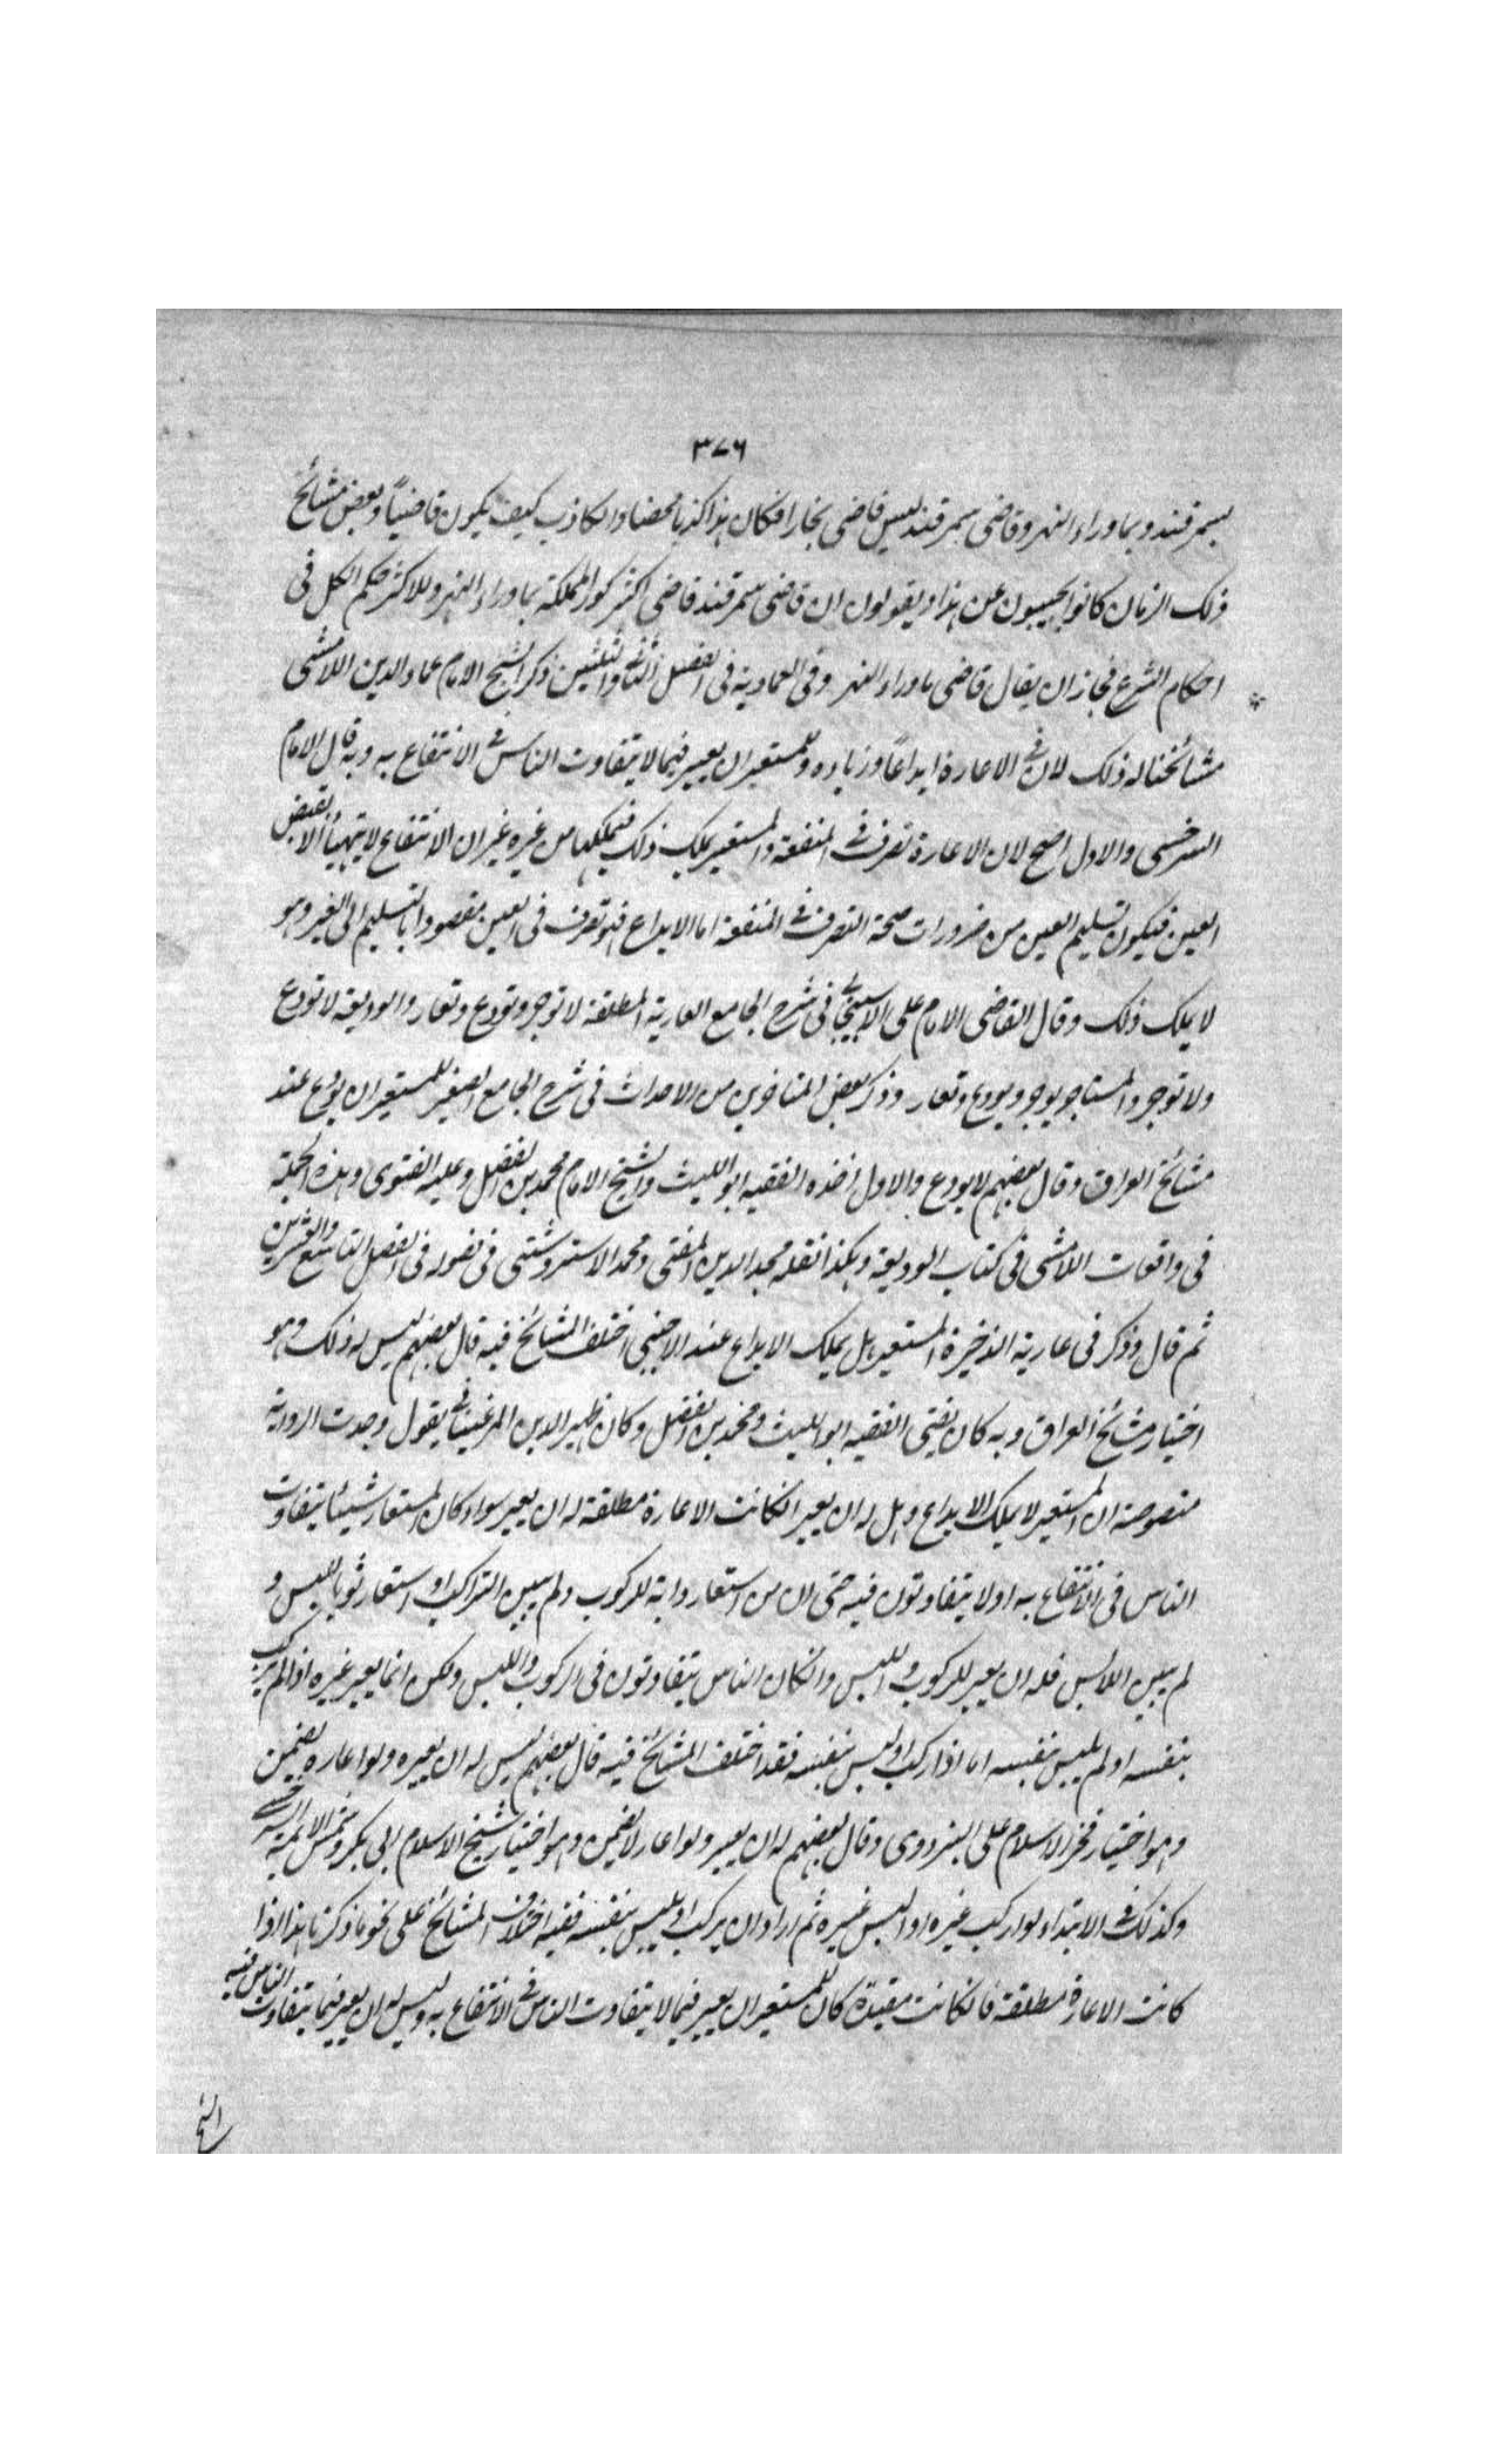 ٣٧٦
بسمرقند وبماوراء النهر وقاضى سمرقند ليس قاضى بخارا فكان هذا كذبا محضا والكاذب كيف يكون قاضياً وبعض مشائخ
ذلك الزمان كانوا يجيبون عن هذا ويقولون ان قاضى سمرقند قاضى اكثر كور المملكة بماوراء النهر وللاكثر حكم الكل فى
احكام الشرع فجاز ان يقال قاضى ماوراء النهر وفى العمادية فى الفصل الثالث والثلثين ذكر الشيخ الامام عماد الدين اللامشى
مشائخنا له ذلك لان فى الاعارة ايداعاً وزياده وللمستعير ان يعير فيما لا يتفاوت الناس فى الانتفاع به وبه قال الامام
السرخسى والاول اصح لان الاعارة تصرف فى المنفعة والمستعير يملك ذلك فيملكها من غيره غير ان الانتفاع لا يتهيأ الا بقبض
العين فيكون تسليم العين من ضرورات صحة التصرف فى المنفعة اما الايداع فهو تصرف فى العين مقصودا بالتسليم الى الغير وهو
لا يملك ذلك وقال القاضى الامام على الاسبيجابى فى شرح الجامع العارية المطلقة لا توجر وتودع وتعار والوديعة لا تودع
ولا توجر والمستاجر يوجر ويودع وتعار وذكر بعض المتاخرين من الاحداث فى شرح الجامع الصغير للمستعير ان يودع عند
مشائخ العراق وقال بعضهم لا يودع والاول اخذه الفقيه ابو الليث والشيخ الامام محمد بن الفضل وعليه الفتوى وهذه الجملة
فى واقعات اللامشى فى كتاب الوديعة وهكذا نقله مجد الدين المفتى ومحمد الاستروشنى فى فصوله فى الفصل التاسع والعشرين
ثم قال وذكر فى عارية الذخيرة المستعير هل يملك الايداع عند الاجنبى اختلف المشائخ فيه قال بعضهم ليس له ذلك وهو
اختيار مشائخ العراق وبه كان يفتى الفقيه ابو الليث ومحمد بن الفضل وكان ظهير الدين المرغينانى يقول وجدت الرواية
منصوصة ان المستعير لا يملك الايداع وهل له ان يعير انكانت الاعارة مطلقة له ان يعير سواء كان المستعار شيئا يتفاوت
الناس فى الانتفاع به او لا يتفاوتون فيه حتى ان من استعار دابة للركوب ولم يبين الراكب او استعار ثوبا للبس و
لم يبين اللابس فله ان يعير للركوب واللبس وانكان الناس يتفاوتون فى الركوب واللبس ولكن انما يعير غيره اذا لم يركب
بنفسه او لم يلبس بنفسه اما اذا ركب او لبس بنفسه فقد اختلف المشائخ فيه قال بعضهم ليس له ان يعيره ولو اعاره يضمن
وهو اختيار فخر الاسلام على البزدوى وقال بعضهم له ان يعير ولو اعار لا يضمن وهو اختيار شيخ الاسلام ابى بكر وشمس الائمة السرخسى
وكذلك فى الابتداء لو اركب غيره او البس غيره ثم اراد ان يركب او يلبس بنفسه ففيه اختلاف المشائخ على نحو ما ذكرنا هذا اذا
كانت الاعارة مطلقة فانكانت مقيدة كان للمستعير ان يعير فيما لا يتفاوت الناس فى الانتفاع به وليس له ان يعير فيما يتفاوت الناس فيه